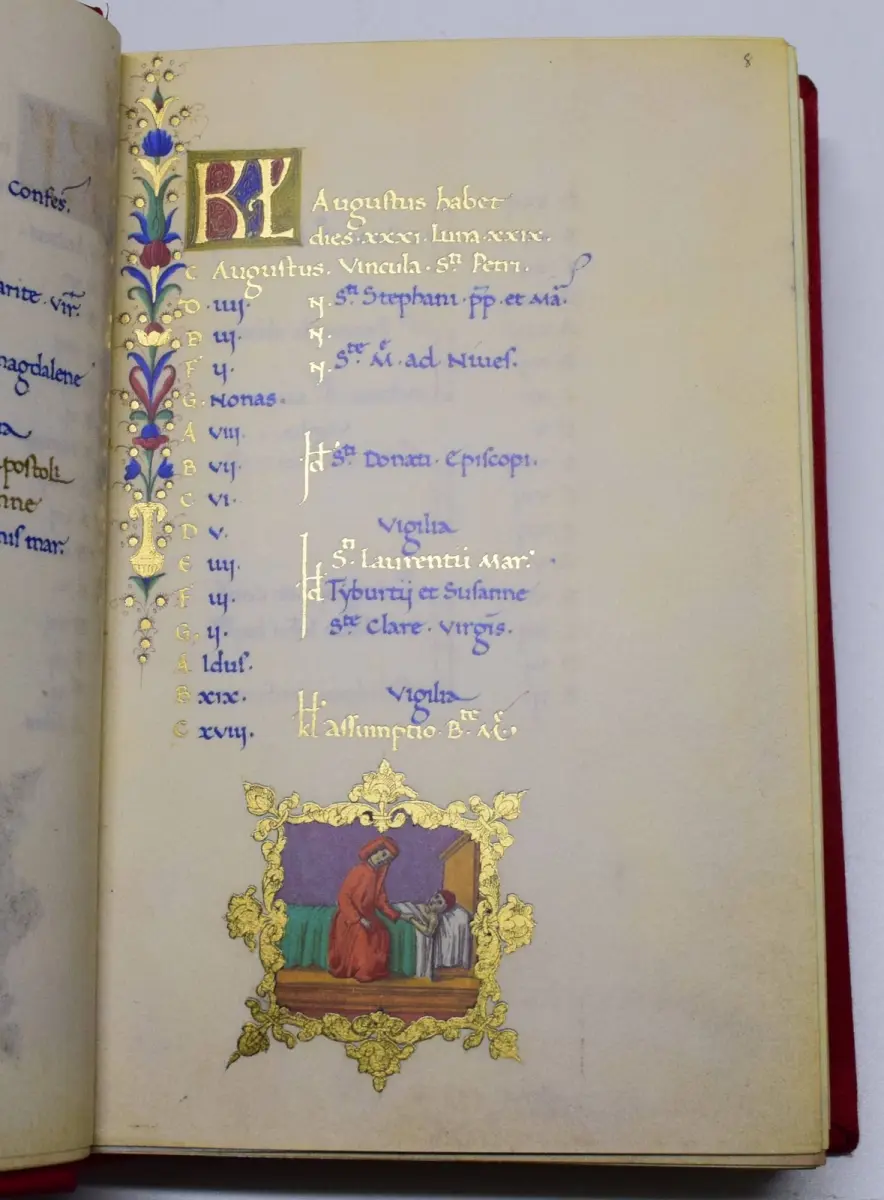 Confes.
arite. vir.
magdalene
postoli
nne
us mar.
8
KL Augustus habet
dies. xxxi. Luna. xxix.
C Augustus. Vincula. Sti Petri.
D. iiij. N. Sti Stephani. pp. et Ma.
E iij. N.
F ij. N. Ste M. ad Nives.
G. Nonas.
A viij.
B vij. Id Sti Donati. Episcopi.
C vi.
D v. Vigilia
E iiij. Sti Laurentii Mar.
F iij. Id Tyburtij et Susanne
G. ij. Ste Clare. Virgis.
A Idus.
B xix. Vigilia
C xviij. kl assumptio. Bte. Me.